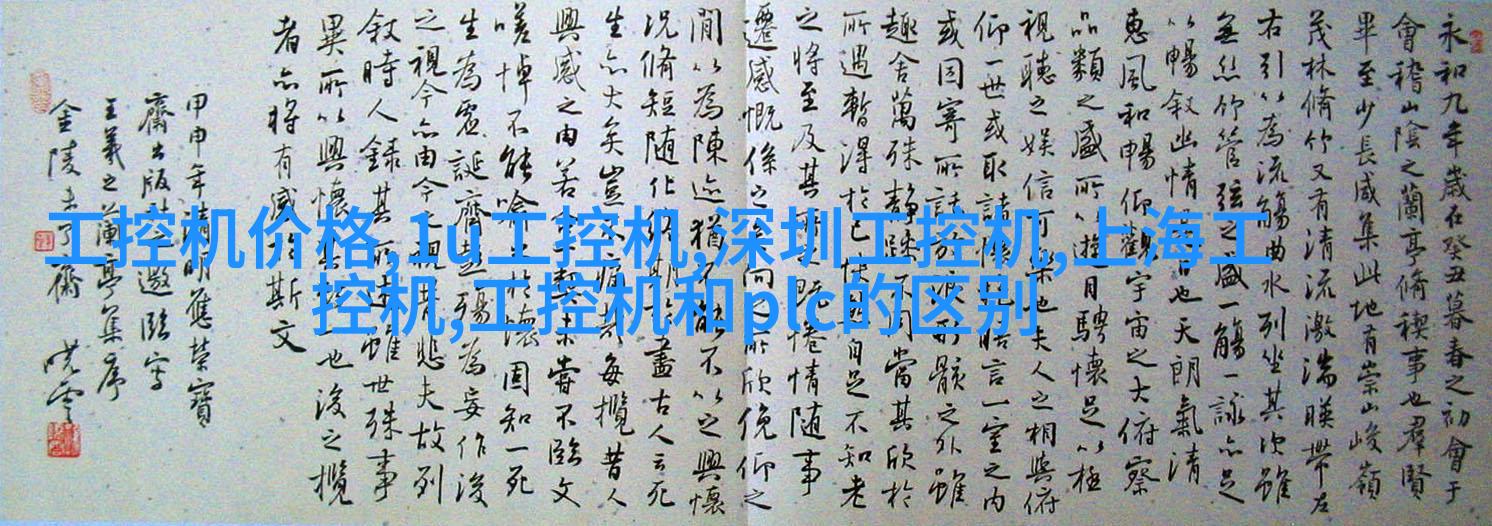 工控机价格,1u工控机,深圳工控机,上海工
控机,工控机和plc的区别
永和九年歲在癸丑暮春之初會于
會稽山陰之蘭亭脩稧事也羣賢
畢至少長咸集此地有崇山峻嶺
茂林脩竹又有清流激湍暎帶左
右引以為流觴曲水列坐其次雖
無絲竹管弦之盛一觴一詠亦足
以暢敘幽情是日也天朗氣清
惠風和暢仰觀宇宙之大俯察
品類之盛所以遊目騁懷足以極
視聽之娛信可樂也夫人之相與俯
仰一世或取諸懷抱悟言一室之內
或因寄所託放浪形骸之外雖
趣舍萬殊靜躁不同當其欣於
所遇暫得於己怏然自足不知老
之將至及其所之既惓情隨事
遷感慨係之矣向之所欣俛仰之
閒以為陳迹猶不能不以之興懷
況脩短隨化終期於盡古人云死
生亦大矣豈不痛哉每攬昔人
興感之由若合一契未嘗不臨文
嗟悼不能喻之於懷固知一死
生為虛誕齊彭殤為妄作後
之視今亦由今之視昔悲夫故列
敘時人錄其所述雖世殊事
異所以興懷其致一也後之攬
者亦將有感於斯文
甲申年清明應榮寶
齋出版社邀臨寫
王羲之蘭亭集序
金陵未了齋